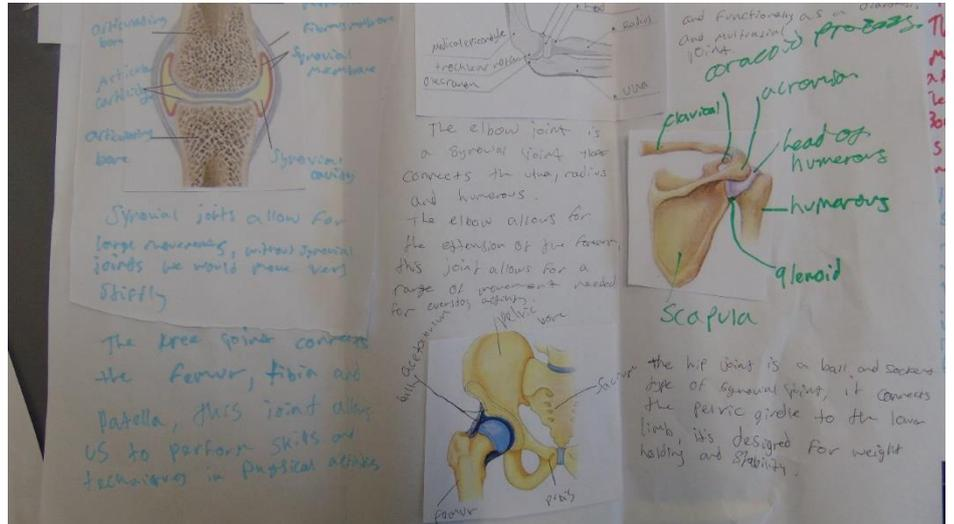 articulating
bone
Fibrous
Articular
cartilage
Synovial
membrane
articulating
bone
Synovial
cavity
Synovial joits allow for
large movements, without synovial
joints we would move very
Stiffly
The knee joint connects
the femur, tibia and
Patella, this joint allows
us to perform skills and
techniques in physical activities
medial epicondyle
trochlear notch
olecranon
radius
ulna
The elbow joint is
a synovial joint that
connects the ulna, radius
and humerous.
The elbow allows for
the extension of the forearm,
this joint allows for a
range of movement needed
for everyday activity.
acetabulum
pelvic
bone
Sacrum
pibis
femur
and functionally as a
and multiaxial
joint.
coracoid
clavical
acromian
head of
humerous
humerous
glenoid
scapula
the hip joint is a ball and socket
type of synovial joint, it connects
the pelvic girdle to the lower
limb, it's designed for weight
holding and stability.